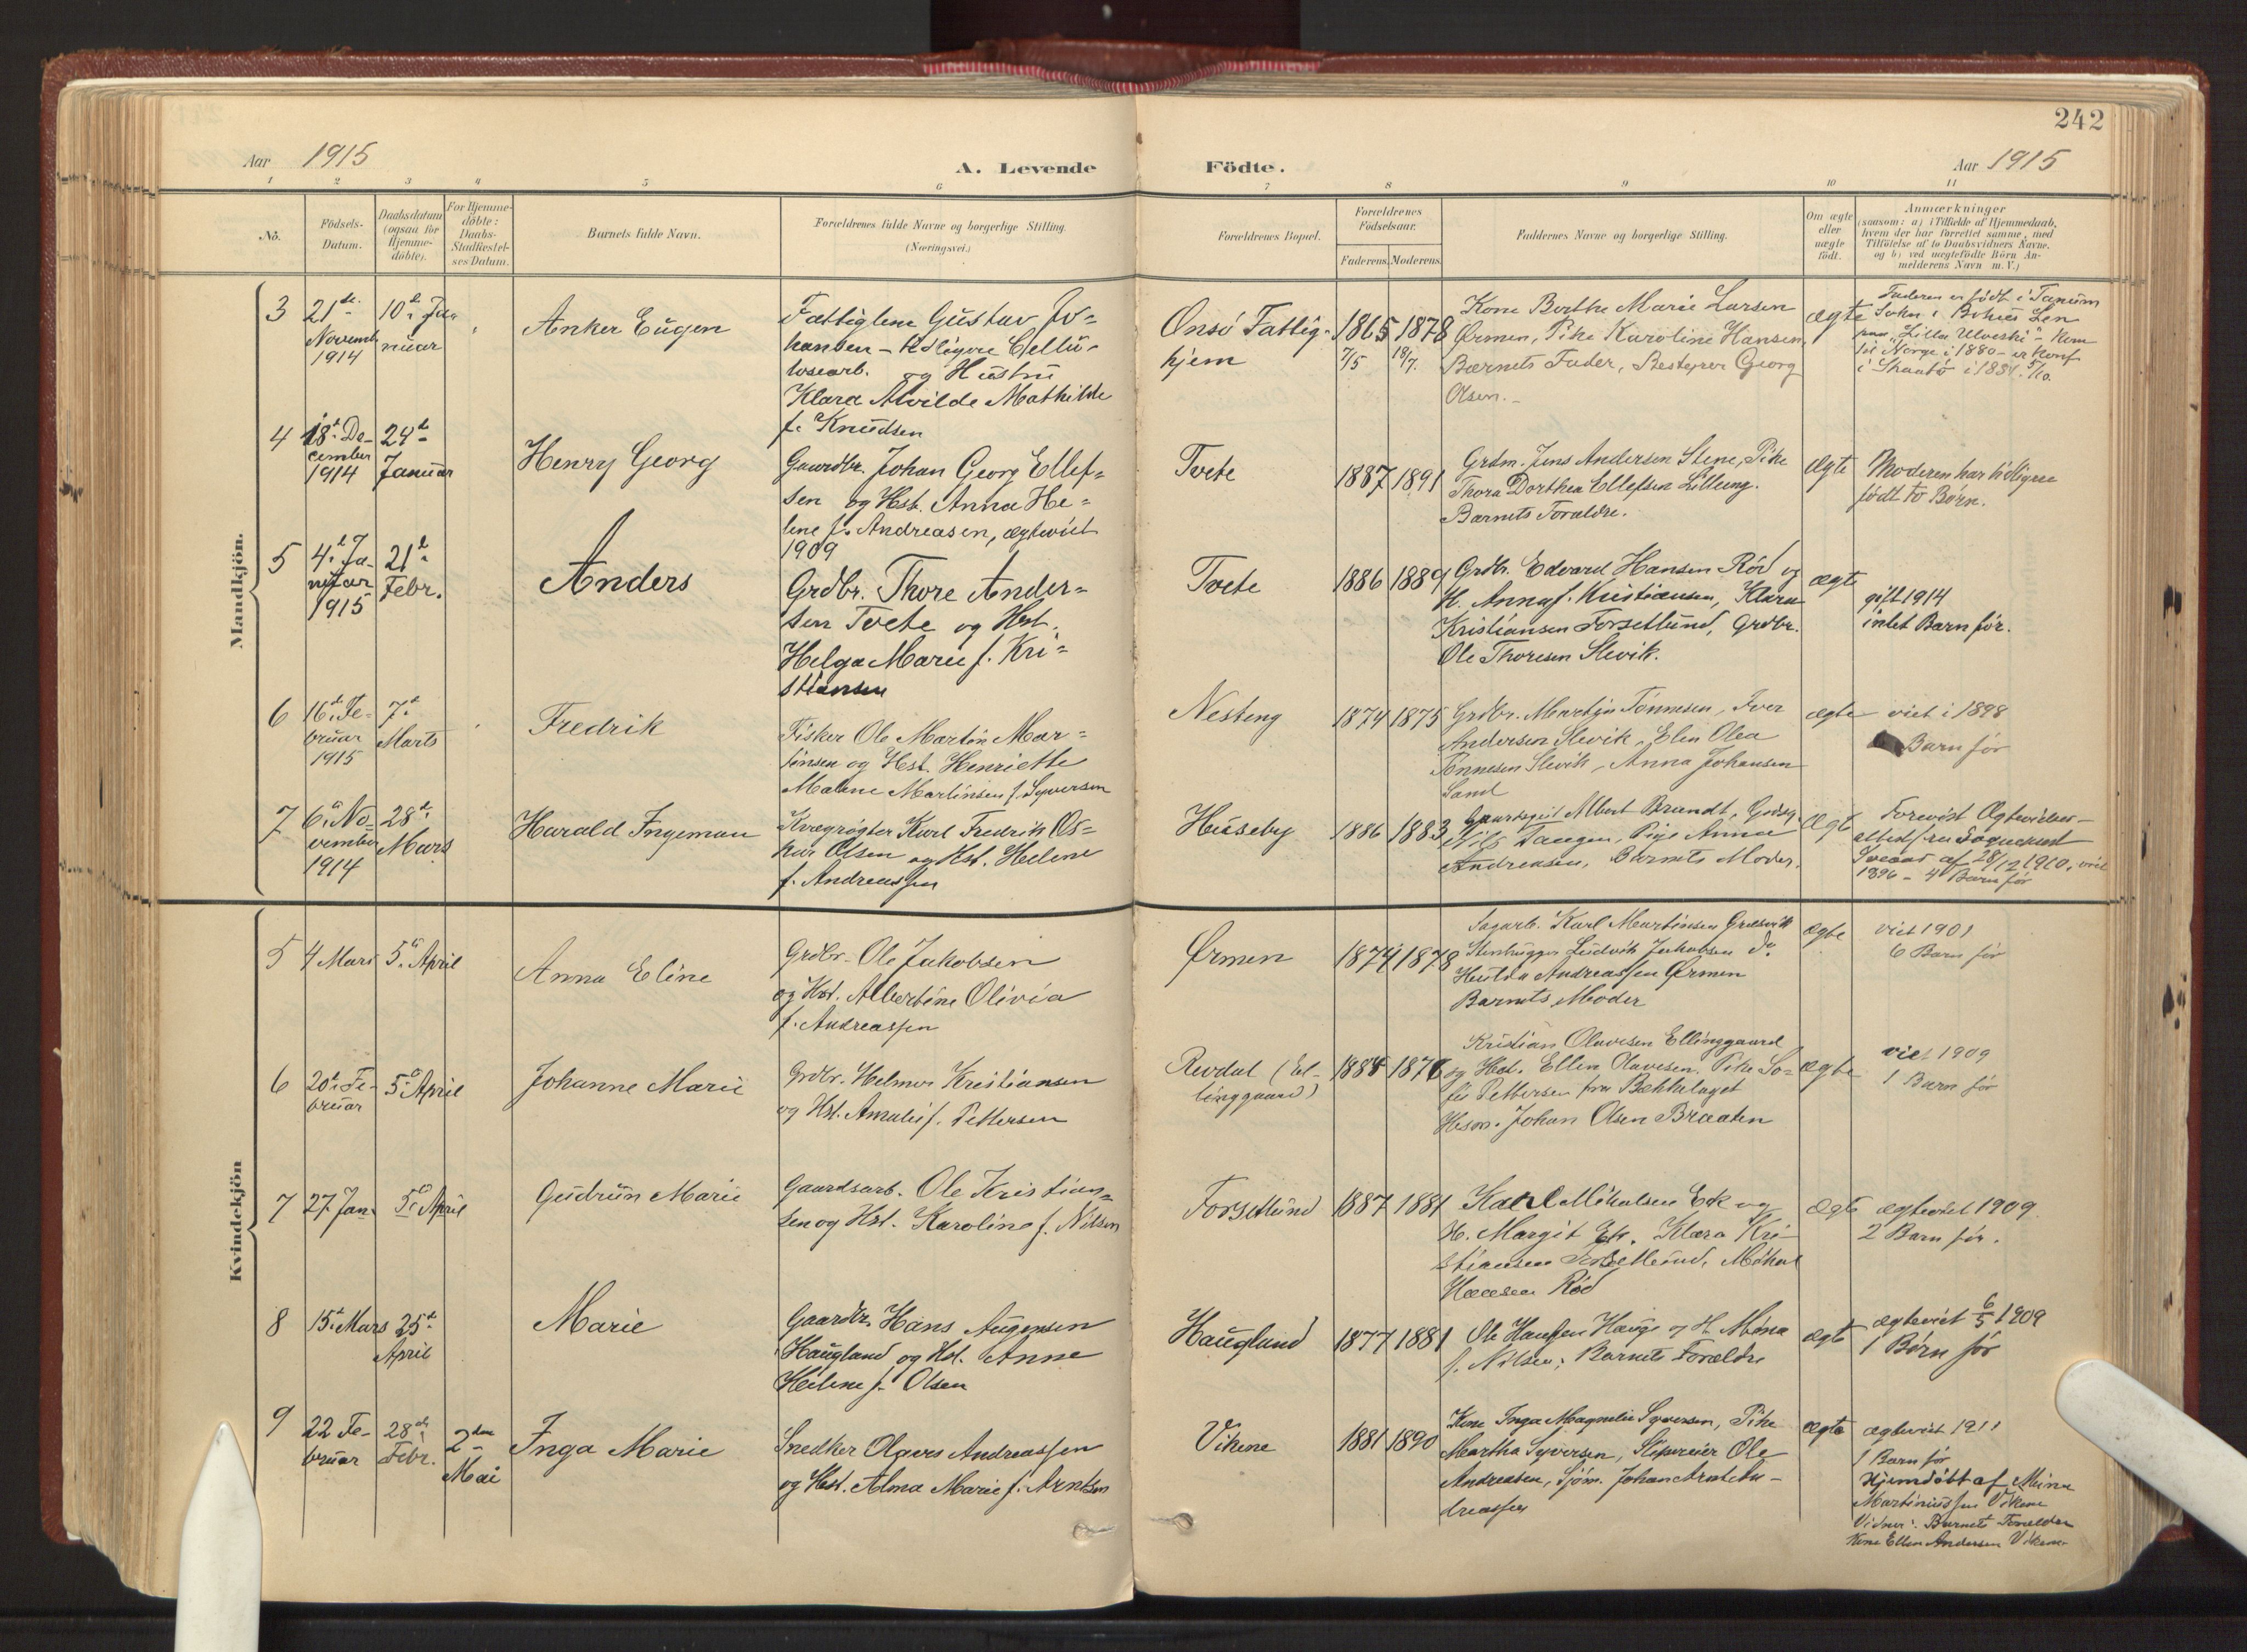 242
Aar 1915
A. Levende
Födte.
Aar 1915
1 2 3 4 5 6 7 8 9 10 11
No.
Födsels-
Datum.
Daabsdatum
(ogsaa for
Hjemme-
döbte).
For Hjemme-
döbte:
Daabs-
Stadfæstel-
ses Datum.
Barnets fulde Navn.
Forældrenes fulde Navne og borgerlige Stilling.
(Næringsvei.)
Forældrenes Bopæl.
Forældrenes
Födselsaar.
Faderens. Moderens.
Faddernes Navne og borgerlige Stilling.
Om ægte
eller
uægte
födt.
Anmærkninger
(saasom: a) i Tilfælde af Hjemmedaab,
hvem der har forrettet samme, med
Tilföielse af to Daabsvidners Navne,
og b) ved uægtefödte Börn An-
melderens Navn m. V.)
Mandkjön.
3
21de
Novemb
1914
10de Ja-
nuar
Anker Eugen
Fattiglem Gustav Jo-
hansen – tidligere Cellu-
losearb. og Hustru
Klara Alvilde Mathilde
f. Knudsen
Onsø Fattig-
hjem
1865
7/5
1878
18/7.
Kone Berthe Marie Larsen
Ørmen, Pike Karoline Hansen,
Barnets Fader, Bestyrer Georg
Olsen.
ægte
Faderen er født i Tanum
Sokn i Bohus Len
paa "Lilla Ulveski" – Kom
til Norge i 1880 – er Konf.
i Skaatö i 1881 5/10.
4
18de De-
cember
1914
24de
Januar
Henry Georg
Gaardbr. Johan Georg Ellef-
sen og Hst. Anna He-
lene f. Andreasen, ægteviet
1909
Tvete
1887
1891
Grdm. Jens Andersen Stene, Pike
Thora Dorthea Ellefsen Lilleng.
Barnets Forældre.
ægte
Moderen har tidligere
født to Børn.
5
4de Ja-
nuar
1915
21de
Febr.
Anders
Grdbr. Thore Ander-
sen Tvete og Hst.
Helga Marie f. Kri-
stiansen
Tvete
1886
1889
Grdbr. Edvard Hansen Rød og
H. Anna f. Kristiansen, Klara
Kristiansen Forsetlund, Grdbr.
Ole Thoresen Slevik.
ægte
gift 1914
intet Barn før.
6
16de Fe-
bruar
1915
7de
Marts
Fredrik
Fisker Ole Martin Mar-
tinsen og Hst. Henriette
Malene Martinsen f. Syversen
Nesteng
1874
1875
Grdbr. Martin Tønnesen, Iver
Andersen Slevik, Elen Olea
Tønnesen Slevik, Anna Johansen
Sand
ægte
viet i 1898
Barn før
7
6te No-
vember
1914
28de
Mars
Harald Ingeman
Kvægrøgter Karl Fredrik Os-
kar Olsen og Hst. Helene
f. Andreassen
Huseby
1886
1883
Albert Brandt,
Nils Tangen, Pige Anna
Andreasen, Barnets Moder.
ægte
Forevist Ægtevielses-
attest fra Sognepræst
af 28/12 1910, viet
1896 – 4 Barn før
Kvindekjön
5
4 Mars
5te April
Anna Eline
Grdbr. Ole Jakobsen
og Hst. Albertine Olivia
f. Andreassen
Ørmen
1874
1878
Sagarb. Karl Martinsen Gressvik
Stenhugger Ludvik Jakobsen do
Hulda Andreassen Ørmen
Barnets Moder
ægte
viet 1901
6 Barn før
6
20de Fe-
bruar
5te April
Johanne Marie
Grdbr. Helmer Kristiansen
og Hst. Amalie f. Pettersen
Revdal (El-
linggaard)
1884
1876
Kristian Olavesen Ellinggaard
og Hst. Ellen Olavesen. Pike So-
fie Pettersen fra Bækkelaget
Hsm. Johan Olsen Braaten
ægte
viet 1909
1 Barn før
7
27. Jan.
5te April
Gudrun Marie
Gaardsarb. Ole Kristian-
sen og Hst. Karoline f. Nilsen
Forsetlund
1887
1881
Karl Mikalsen Ek og
H. Margit Ek. Klara Kri-
stiansen Forsetlund, Mikal
Hansen Rød
ægte
ægteviet 1909.
2 Barn før.
8
15de Mars
25de
April
Marie
Gaardbr. Hans Augensen
Haugland og Hst. Anne
Helene f. Olsen
Haugland
1877
1881
Ole Hansen Hauge og H. Mina
f. Nilsen; Barnets Forældre
ægte
ægteviet 6/5 1909
1 Børn før
9
22 Fe-
bruar
28de
Febr.
2den
Mai
Inga Marie
Snedker Olaves Andreassen
og Hst. Alma Marie f. Arntsen
Vikene
1881
1890
Kone Inga Magnelie Syversen, Pike
Martha Syversen, Ole
Andreasen, Sjøm. Johan Arnt An-
dreassen
ægte
ægteviet 1911
1 Barn før
Hjemdöbt af Mina
Martiniussen Vikene
Vidner: Barnets Forældre
Kone Ellen Andersen Vikene